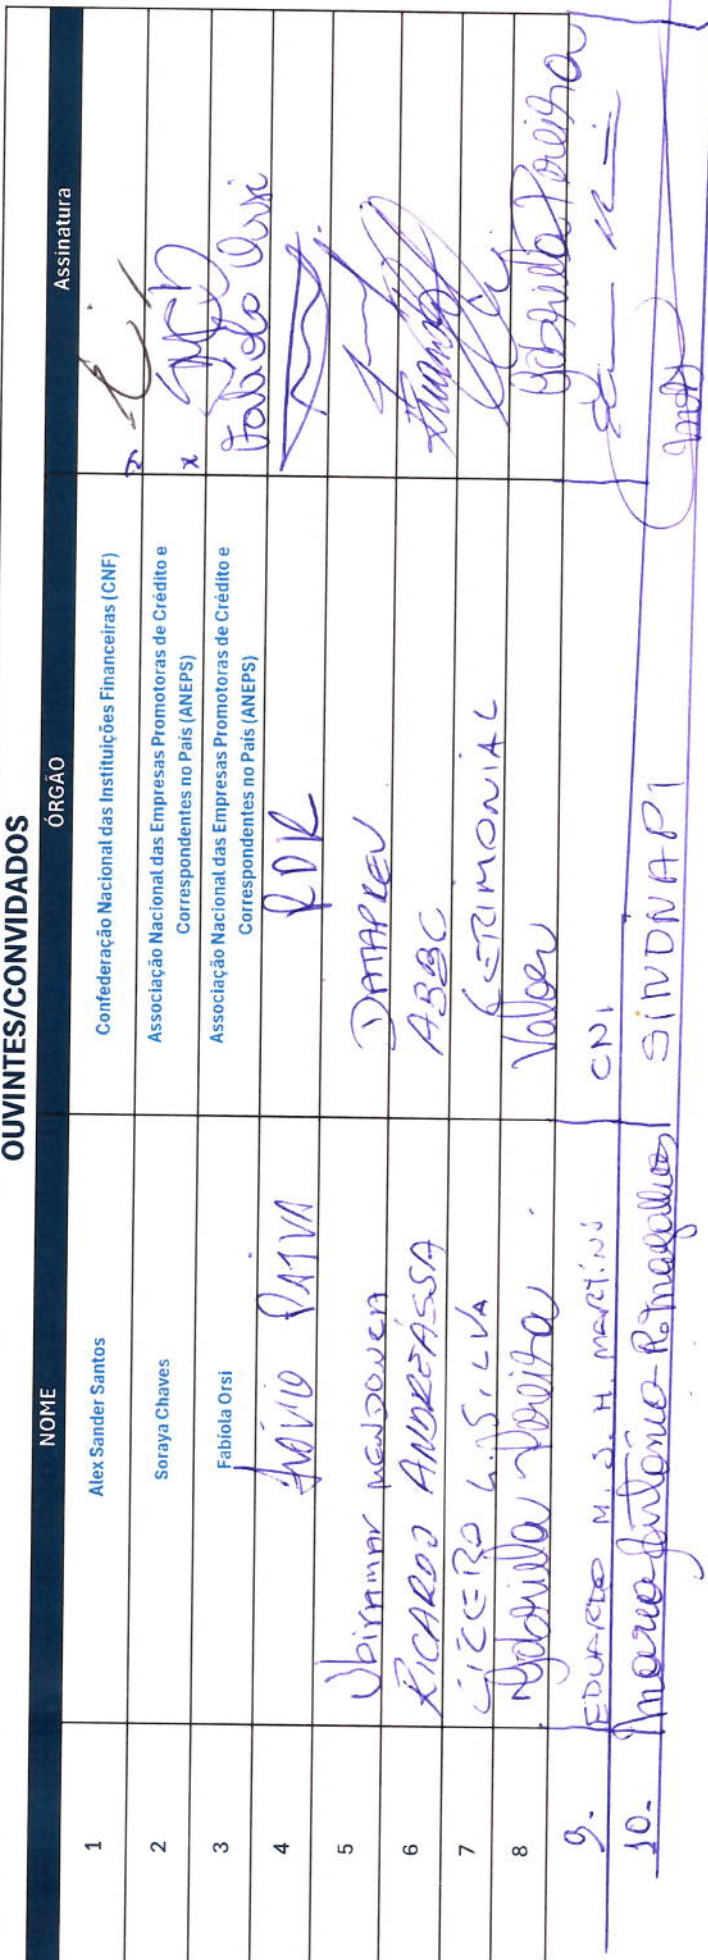 OUVINTES/CONVIDADOS
NOME ÓRGÃO Assinatura
1 Alex Sander Santos Confederação Nacional das Instituições Financeiras (CNF)
2 Soraya Chaves Associação Nacional das Empresas Promotoras de Crédito e
Correspondentes no País (ANEPS)
3 Fabiola Orsi Associação Nacional das Empresas Promotoras de Crédito e
Correspondentes no País (ANEPS) Fabiola Orsi
4 PAIVA
5 Ubiramar MENDONCA DATAPREV
6 RICARDO ANDREÁSSA ABBC
7 CÍCERO SILVA CERIMONIAL
8 Gabriella Pereira Valor Gabriella Pereira
9. EDUARDO M. S. H. MARTINS CNI
10. Mario Antônio R. Magalhães SINDNAPI